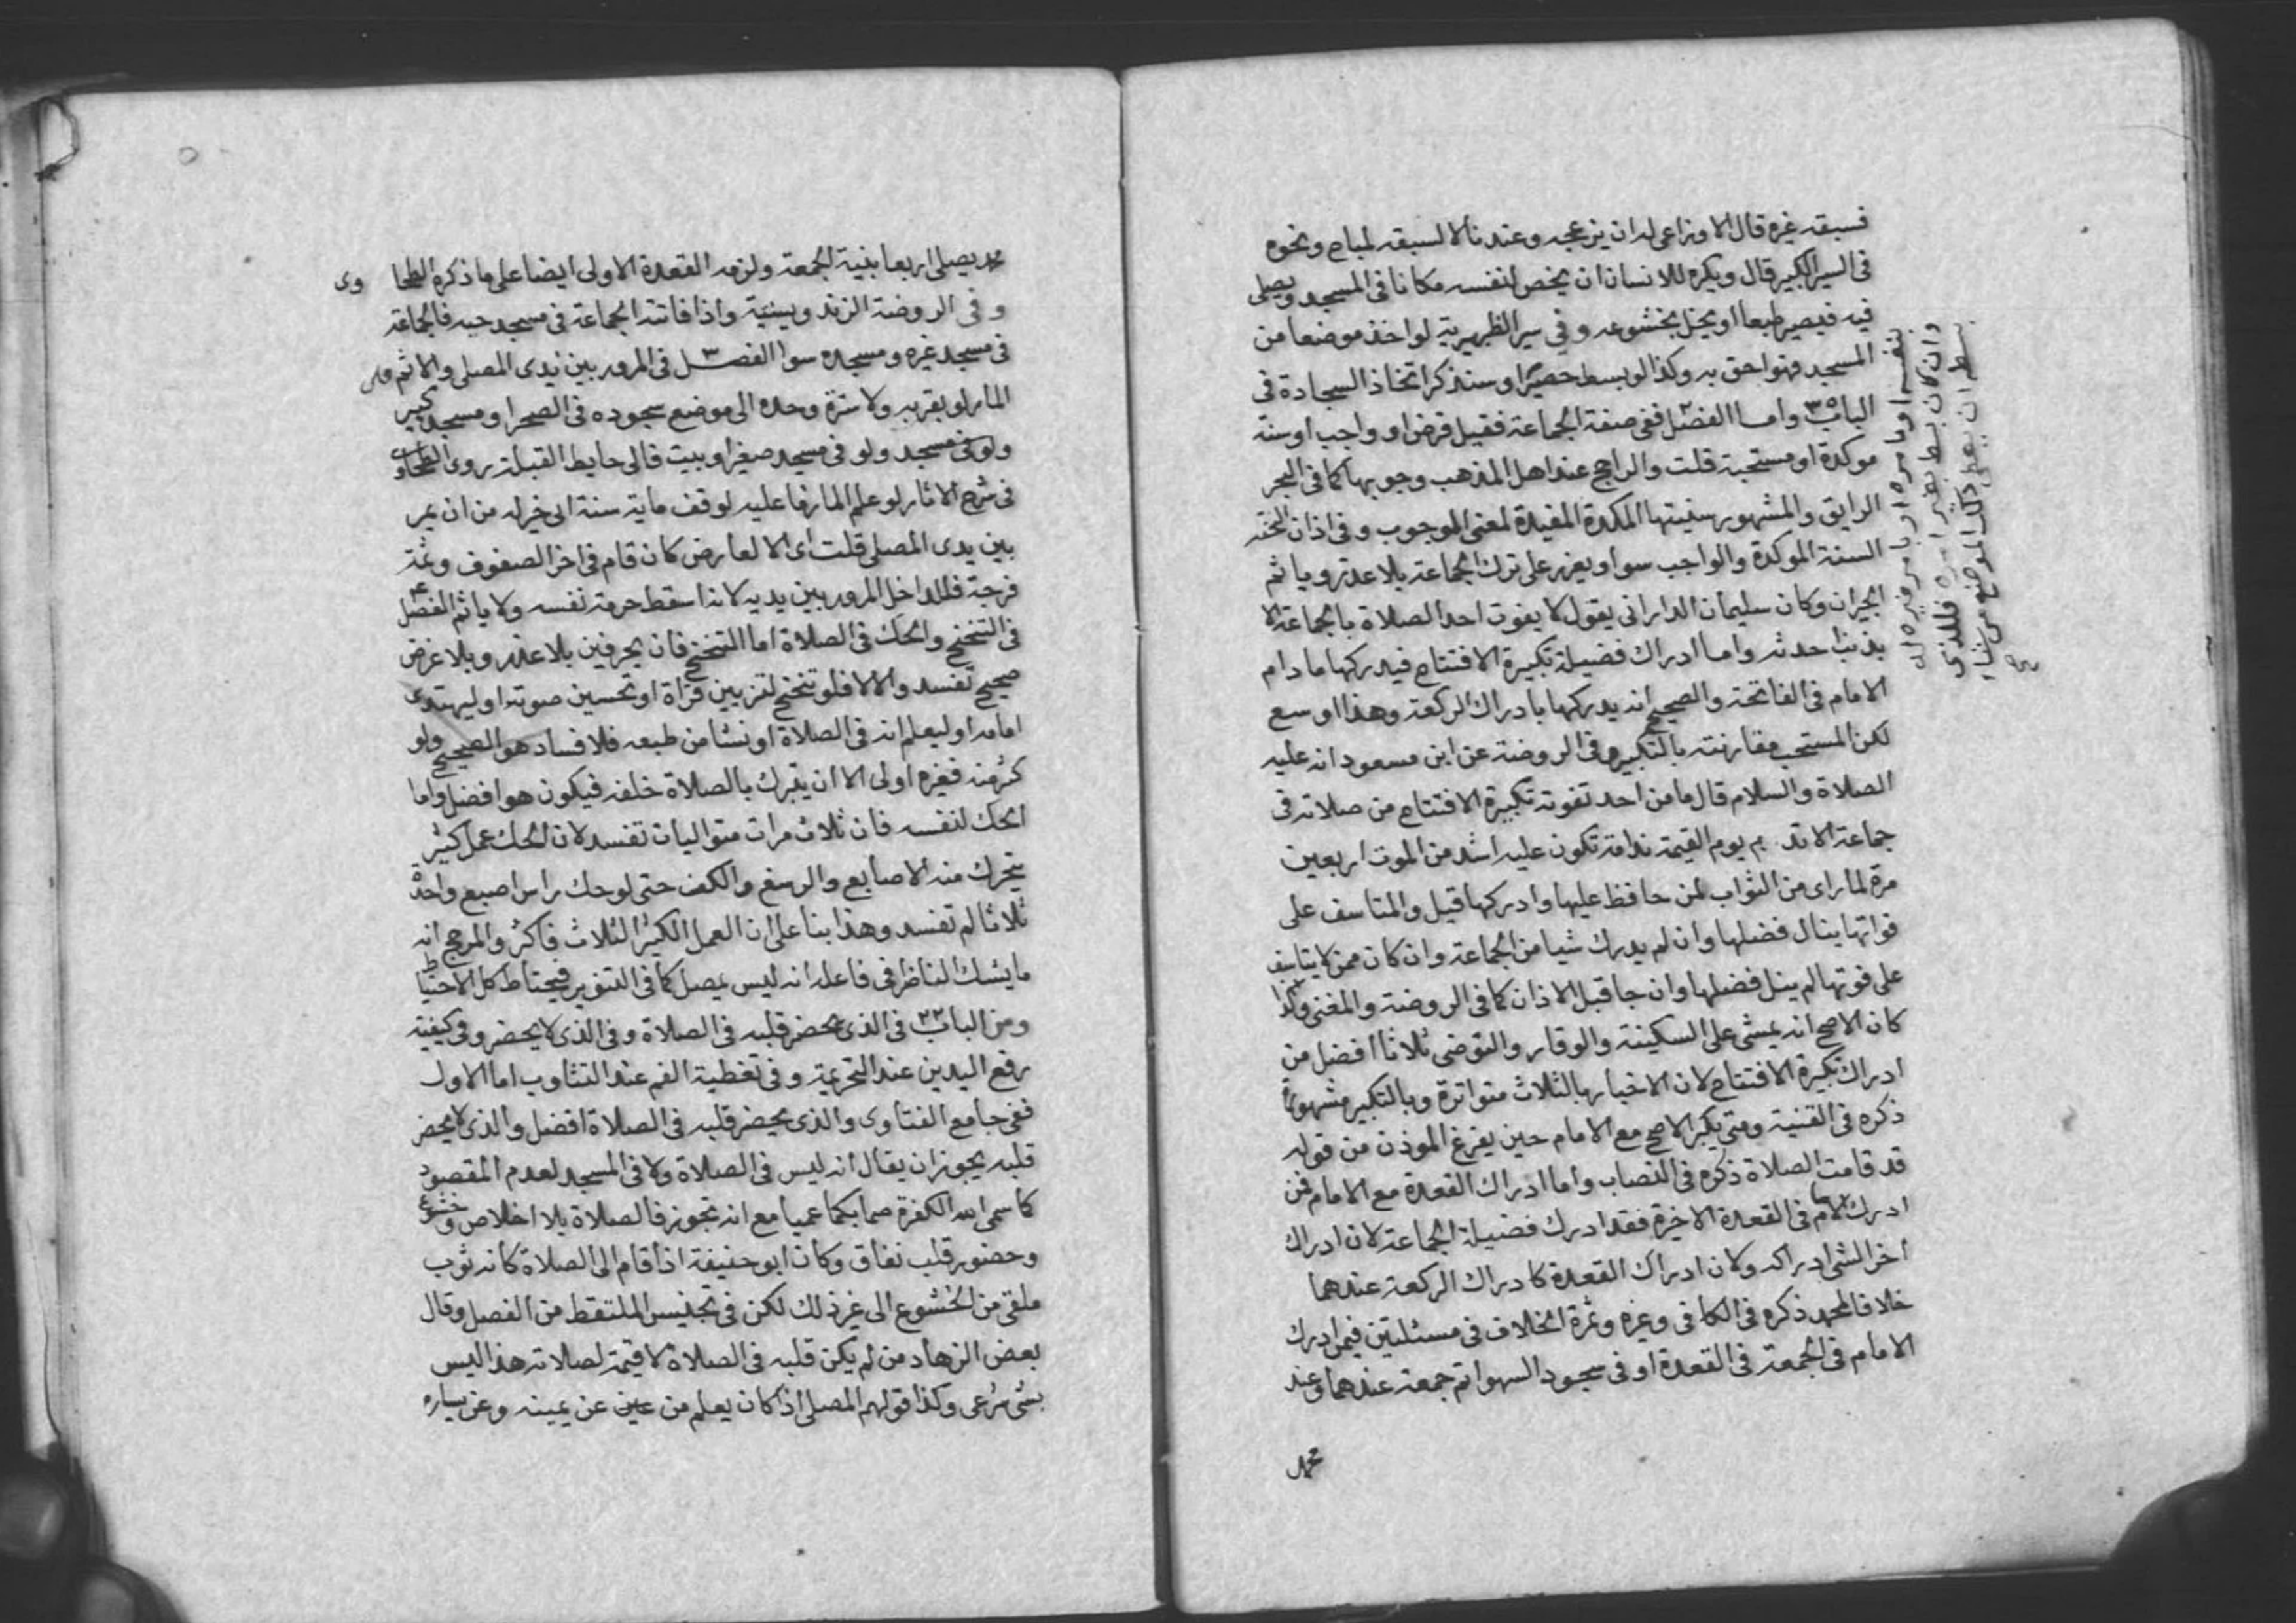 فسبقه غيره قال الاوزاعى له ان يزعجه وعندنا لا لسبقه لمباح ونحوه
فى السير الكبير قال ويكره للانسان ان يخص لنفسه مكانا فى المسجد ويصلى
فيه فيصير طبعا او يخل بخشوعه وفي سير الظهيرية لو اخذ موضعا من
المسجد فهو احق به وكذا لو بسط حصيرا وسنذكر اتخاذ السجادة فى
الباب ٣٥ واما الفصل ٢ ففى صفة الجماعة فقيل فرض او واجب او سنة
موكدة او مستحبة قلت والراجح عند اهل المذهب وجوبها كما فى البحر
الرايق والمشهور سنيتها المكدة المفيدة لمعنى الوجوب وفى اذان
السنة الموكدة والواجب سوا ويعزر على ترك الجماعة بلا عذر وياثم
الجيران وكان سليمان الدارانى يقول لا يفوت احد الصلاة بالجماعة الا
بذنب احدثه واما ادراك فضيلة تكبيرة الافتتاح فيدركها ما دام
الامام فى الفاتحة والصحيح انه يدركها بادراك الركعة وهذا اوسع
لكن المستحب مقارنته بالتكبير وفى الروضة عن ابن مسعود انه عليه
الصلاة والسلام قال ما من احد تفوته تكبيرة الافتتاح من صلاته فى
جماعة الا ند م يوم القيمة ندامة تكون عليه اشد من الموت اربعين
مرة لما راى من الثواب لمن حافظ عليها وادركها قيل والمتاسف على
فواتها ينال فضلها وان لم يدرك شيا من الجماعة وان كان ممن لا يتاسف
على فوتها لم ينل فضلها وان جا قبل الاذان كما فى الروضة والمغنى ولذا
كان الاصح انه يمشى على السكينة والوقار والتوضى ثلاثا افضل من
ادراك تكبيرة الافتتاح لان الاخبار بالثلاث متواترة وبالتكبير مشهورة
ذكره فى القنية ومتى يكبر الاصح مع الامام حين يفرغ الموذن من قوله
قد قامت الصلاة ذكره فى النصاب واما ادراك القعدة مع الامام فمن
ادرك الامام فى القعدة الاخيرة فقد ادرك فضيلة الجماعة لان ادراك
اخر الشى ادراكه ولان ادراك القعدة كادراك الركعة عندهما
خلافا لمحمد ذكره فى الكافى وغيره وثمرة الخلاف فى مسئلتين فيمن ادرك
الامام فى الجمعة فى القعدة او فى سجود السهو اتم جمعة عندهما وعند
محمد
بنفسه او بامره
وان كان بسط بغير امره فللذى
بسط ان يعطى ذلك الموضع من شاء
محمد يصلى اربعا بنية الجمعة ولزمه القعدة الاولى ايضا على ما ذكره الطحا وى
وفى الروضة الزندويسيتية واذا فاتته الجماعة فى مسجد حيه فالجماعة
فى مسجد غيره ومسجده سوا الفصـــل ٣ فى المرور بين يدى المصلى والاثم على
المار لو بقربه ولا سترة وحده الى موضع سجوده فى الصحرا ومسجد كبير
ولو فى مسجد ولو فى مسجد صغير او بيت فالى حايط القبلة روى الطحاوى
فى شرح الاثار لو علم المار ما عليه لوقف ماية سنة اى خير له من ان يمر
بين يدى المصلى قلت اى الا لعارض كان قام فى اخر الصفوف وثمة
فرجة فللداخل المرور بين يديه لانه اسقط حرمة نفسه ولا ياثم الفصل ٤
فى التنحنح والحك فى الصلاة اما التنحنح فان بحرفين بلا عذر وبلا غرض
صحيح تفسد والا لا فلو تنحنح لتزيين قراة او تحسين صوته او ليهتدى
امامه او ليعلم انه فى الصلاة او نشا من طبعه فلا فساد هو الصحيح ولو
كثر منه فغيره اولى الا ان يتبرك بالصلاة خلفه فيكون هو افضل واما
الحك لنفسه فان ثلاث مرات متواليات تفسد لان الحك عمل كثير
يتحرك منه الاصابع والرسغ والكف حتى لو حك براس اصبع واحدة
ثلاثا لم تفسد وهذا بنا على ان العمل الكثير الثلاث فاكثر والمرجح انه
ما يشك الناظر فى فاعله انه ليس يصل كما فى التنوير فيحتاط كل الاحتياط
ومن الباب ٢٣ فى الذى يحضر قلبه فى الصلاة وفى الذى لا يحضر وفى كيفية
رفع اليدين عند التحريمة وفى تغطية الفم عند التثاوب اما الاول
ففى جامع الفتاوى والذى يحضر قلبه فى الصلاة افضل والذى لا يحضر
قلبه يجوز ان يقال انه ليس فى الصلاة ولا فى المسجد لعدم المقصود
كما سمى الله الكفرة صما بكما عميا مع انه تجوز فالصلاة بلا اخلاص وخشوع
وحضور قلب نفاق وكان ابو حنيفة اذا قام الى الصلاة كانه ثوب
ملقى من الخشوع الى غير ذلك لكن فى تجنيس الملتقط من الفصل وقال
بعض الزهاد من لم يكن قلبه فى الصلاة لا قيمة لصلاته هذا ليس
بشى شرعى وكذا قولهم المصلى اذا كان يعلم من عن يمينه وعن يساره